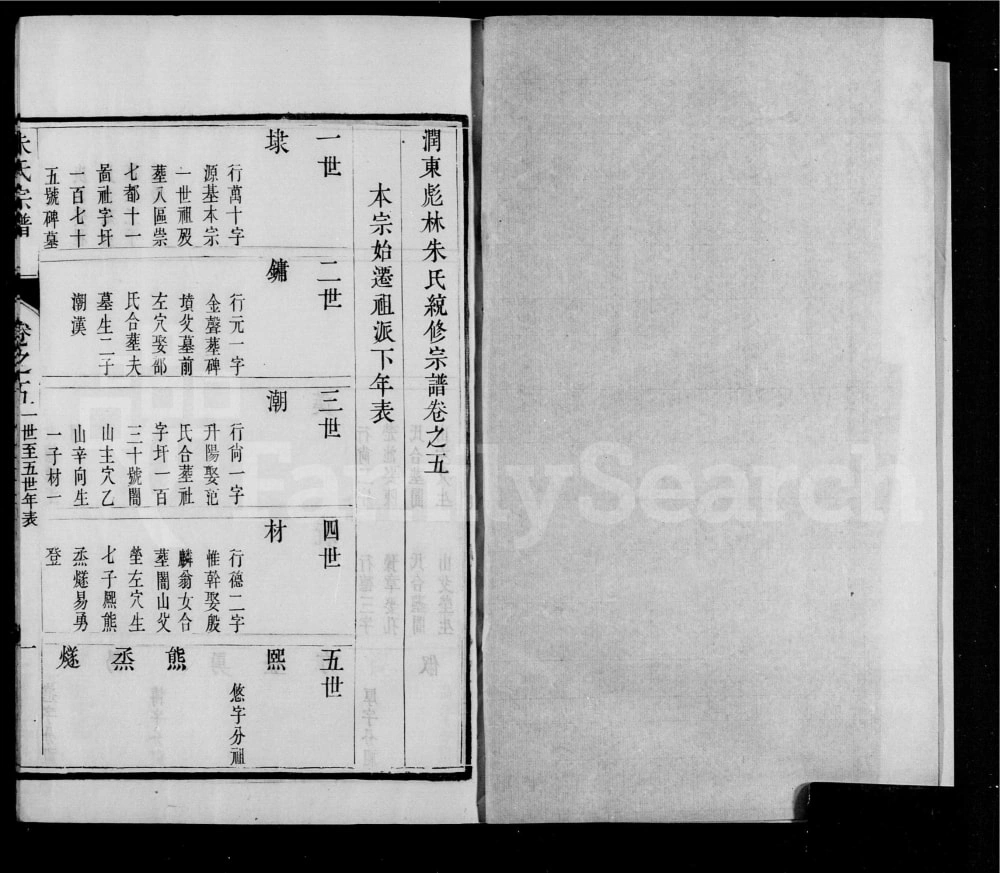 潤東彪林朱氏統修宗譜卷之五
本宗始遷祖派下年表
一世
埭
行萬十字
源基本宗
一世祖歿
葬八區崇
七都十一
啚社字圩
一百七十
五號碑墓
二世
鏞
行元一字
金聲葬碑
墳父墓前
左穴娶邵
氏合葬夫
墓生二子
潮漢
三世
潮
行尙一字
升陽娶范
氏合葬社
字圩一百
三十號闇
山主穴乙
山辛向生
一子材一
四世
材
行德二字
惟幹娶殷
麟翁女合
葬闇山父
塋左穴生
七子熙熊
烝燧易勇
登
五世
熙
悠字分祖
熊
烝
燧
朱氏宗譜
卷之五
一世至五世年表
一
FamilySearch